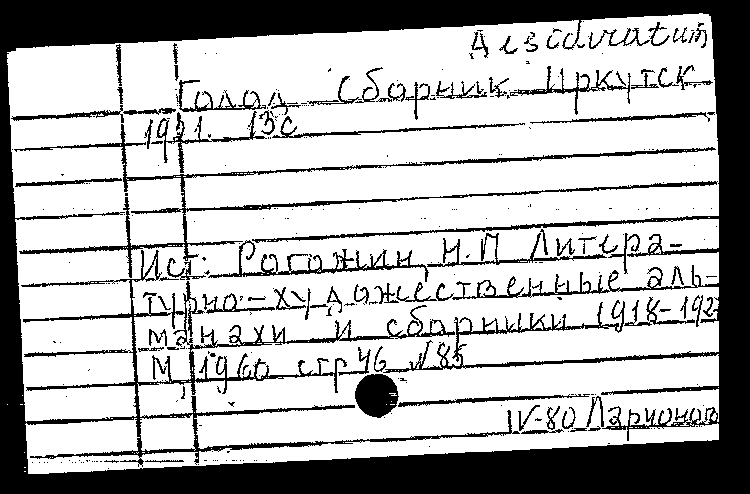 Desiduratum
Голод Сборник Иркутск
1921. 13с
Ист: Рогожин, Н.П Литера-
турно-художественные аль-
манахи и сборники 1918-1927
М, 1960 стр 46 №85
IV-80 Ларионов